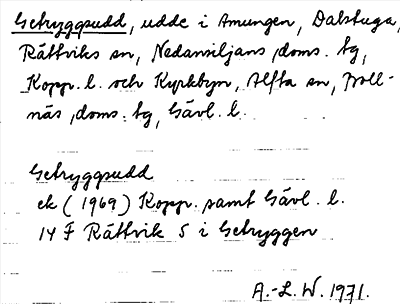 Getryggsudd, udde i Amungen, Dalstuga,
Rättviks sn, Nedansiljans doms. tg,
Kopp. l. och Kyrkbyn, Alfta sn, Boll-
näs doms. tg, Gävl. l.
Getryggsudd
ek (1969) Kopp. samt Gävl. l.
14 F Rättvik 5 i Getryggen
A.-L. W. 1971.